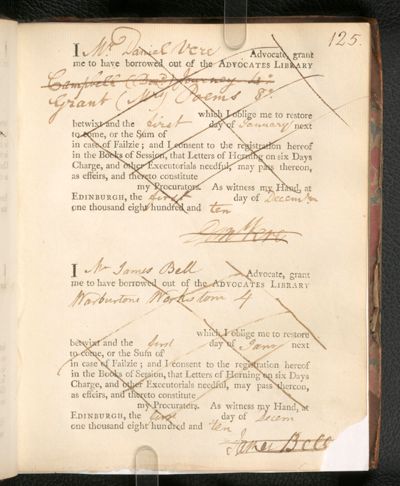 125.
I Mr. Daniel Vere Advocate, grant
me to have borrowed out of the ADVOCATES LIBRARY
Campbell (Dod) Journey 4o
Grant (Mrs) Poems 8o
which I oblige me to restore
betwixt and the first day of January next
to come, or the Sum of
in case of Failzie; and I consent to the registration hereof
in the Books of Session, that Letters of Horning on six Days
Charge, and other Executorials needful, may pass thereon,
as effeirs, and thereto constitute
my Procurators. As witness my Hand, at
EDINBURGH, the first day of December
one thousand eight hundred and ten
Danl Vere
I Mr James Bell Advocate, grant
me to have borrowed out of the ADVOCATES LIBRARY
Warburtons Works tom 4
which I oblige me to restore
betwixt and the first day of Jany next
to come, or the Sum of
in case of Failzie; and I consent to the registration hereof
in the Books of Session, that Letters of Horning on six Days
Charge, and other Executorials needful, may pass thereon,
as effeirs, and thereto constitute
my Procurators. As witness my Hand, at
EDINBURGH, the first day of Decem
one thousand eight hundred and ten
James Bell